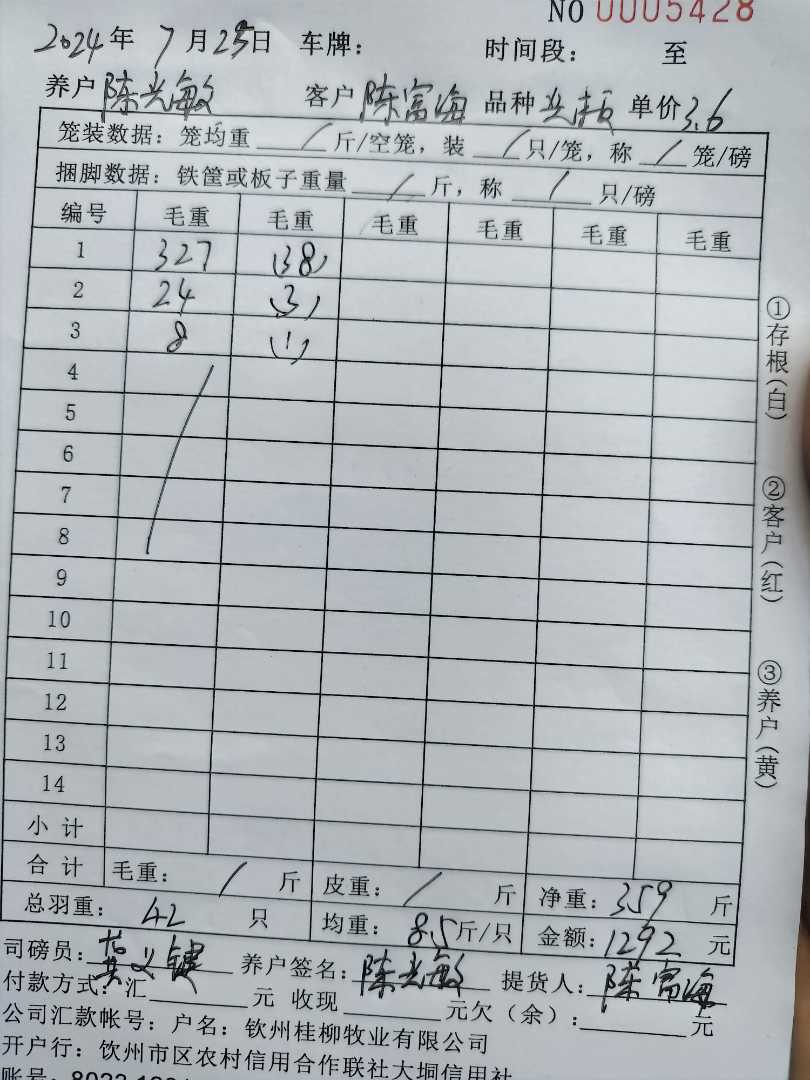 NO 0005428
2024年 7月25日 车牌： 时间段： 至
养户 陈光敏 客户 陈富海 品种 单价 3.6
笼装数据：笼均重 / 斤/空笼，装 / 只/笼，称 / 笼/磅
捆脚数据：铁筐或板子重量 / 斤，称 / 只/磅
编号 毛重 毛重 毛重 毛重 毛重 毛重
1 327 (38)
2 24 (3)
3 8 (1)
4
5
6
7
8
9
10
11
12
13
14
小计
合计 毛重： / 斤 皮重： / 斤 净重：359 斤
总羽重： 42 只 均重： 8.5斤/只 金额：1292 元
司磅员：黄义键 养户签名：陈光敏 提货人：陈富海
付款方式：汇 元 收现 元欠（余）： 元
公司汇款帐号：户名：钦州桂柳牧业有限公司
开户行：钦州市区农村信用合作联社大垌信用社
①存根(白)
②客户(红)
③养户(黄)